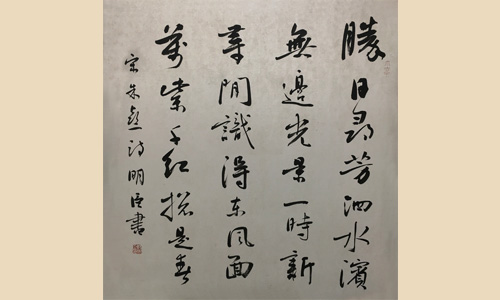 勝日尋芳泗水濱
無邊光景一時新
等閒識得東風面
萬紫千紅總是春
宋朱熹詩明臣書